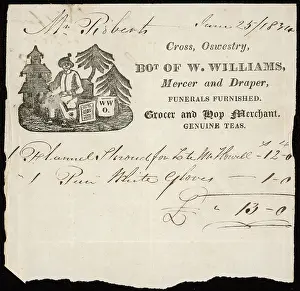 Mr Roberts June 25/18
Cross, Oswestry,
BOT OF W. WILLIAMS,
Mercer and Draper,
FUNERALS FURNISHED.
Grocer and Hop Merchant.
GENUINE TEAS.
WW
O.
1 Flannel Shroud for late Mr Howell 12-0
1 Pair White Gloves 1-0
£ " 13-0